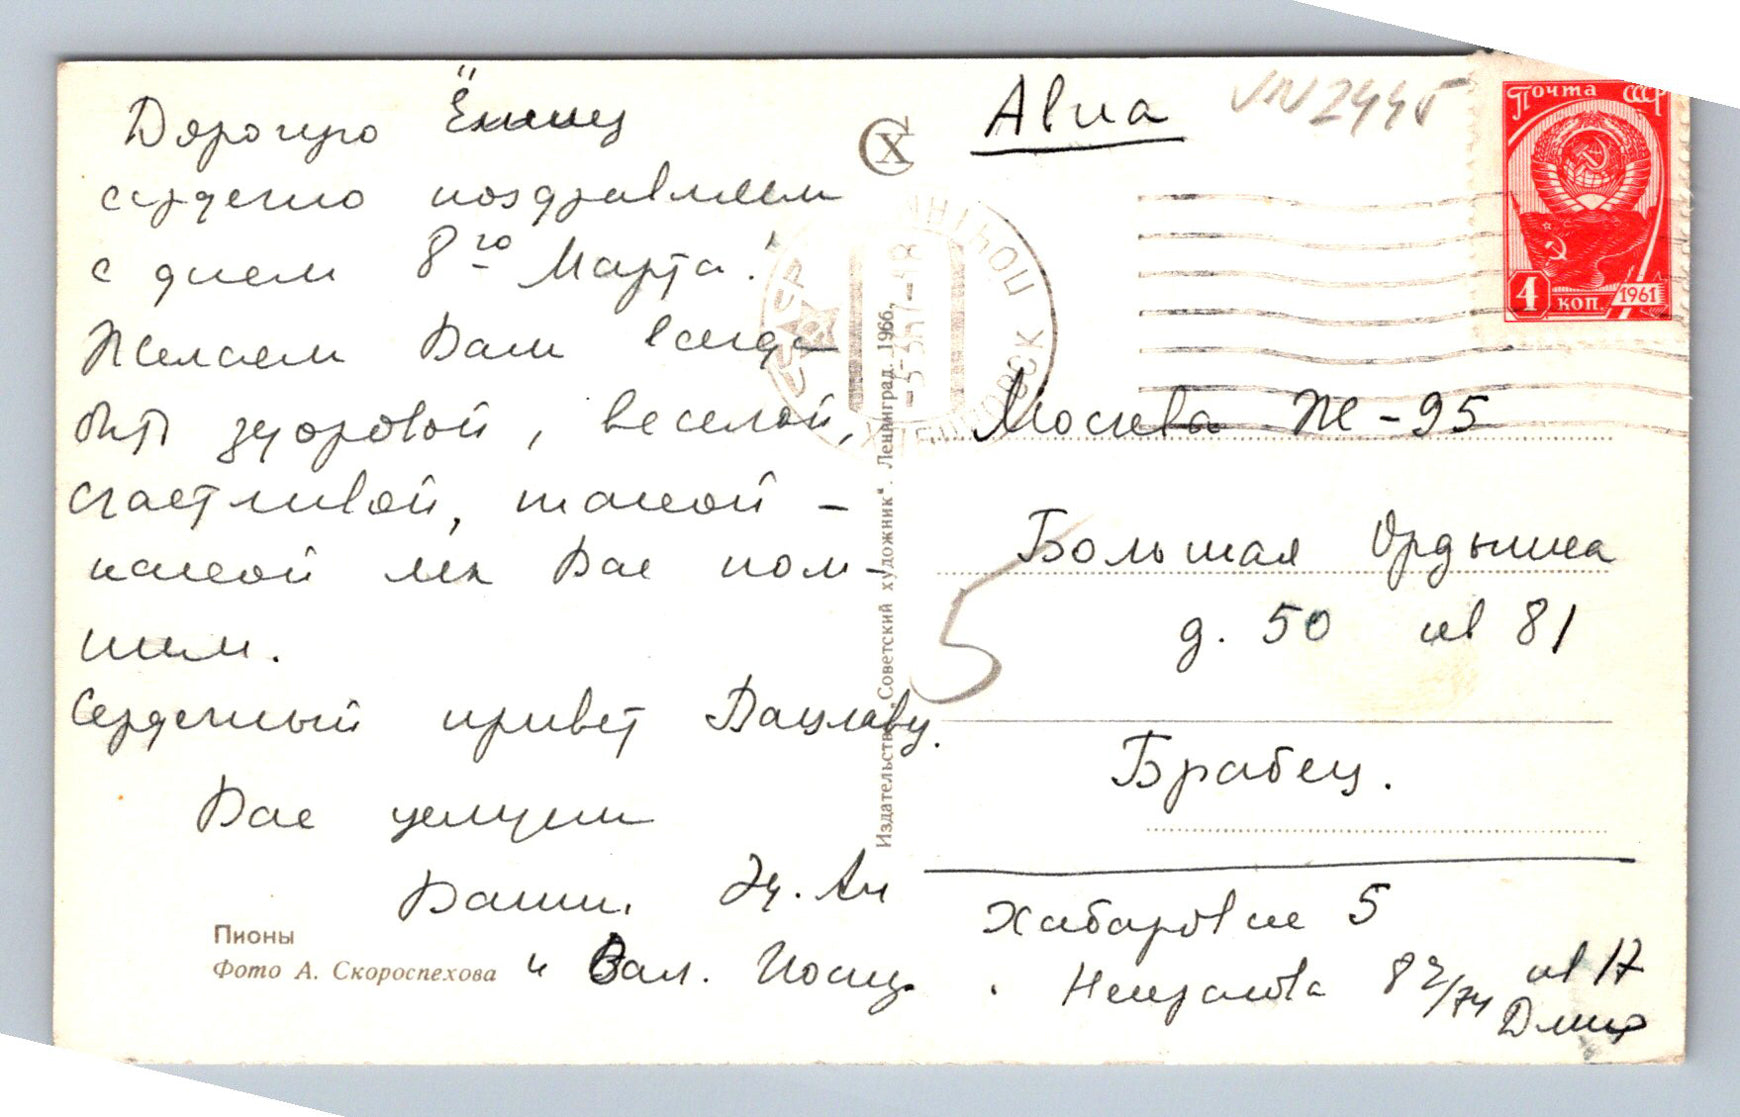 Дорогую
сердечно поздравляем
с днем 8го Марта!
Желаем Вам всегда
быть здоровой, веселой,
счастливой, такой -
какой мы Вас пом-
ним.
Сердечный привет Вацлаву.
Вас целуем
Ваши. Эд. Ан
и Вал. Иосиф.
Пионы
Фото А. Скороспехова
Издательство „Советский художник“. Ленинград. 1966.
СХ
Авиа
Почта СССР
4 коп. 1961
ПОЧТАМТ
СССР
Москва Ж-95
Большая Ордынка
д. 50 кв 81
5
Брабец.
Хабаровск 5
Некрасова кв 17